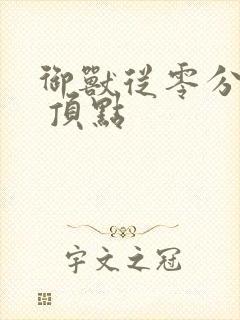 御獸從零分
頂點
宇文之冠